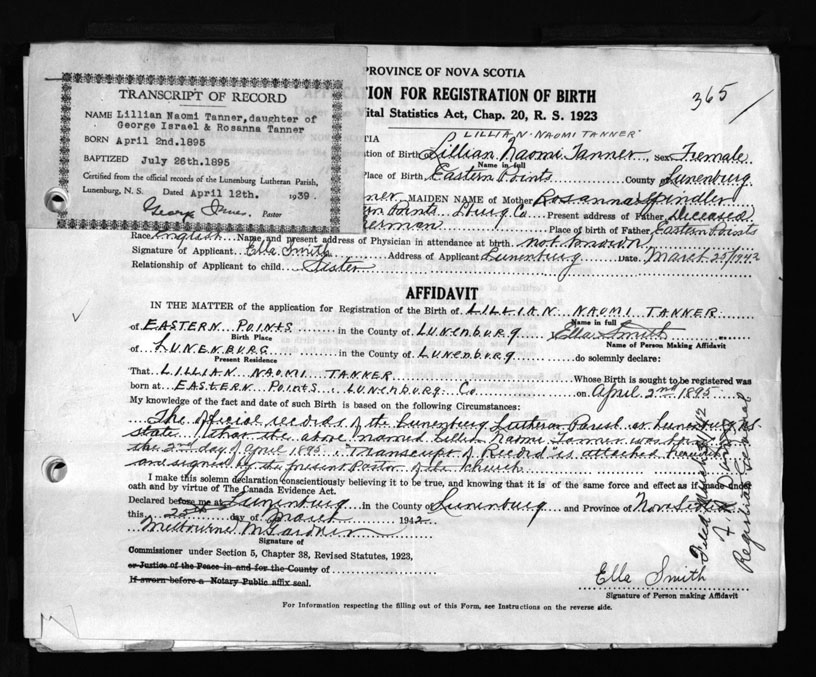 TRANSCRIPT OF RECORD
NAME Lillian Naomi Tanner, daughter of
George Israel & Rosanna Tanner
BORN April 2nd.1895
BAPTIZED July 26th.1895
Certified from the official records of the Lunenburg Lutheran Parish,
Lunenburg, N. S. Dated April 12th. 1939.
George Pastor
PROVINCE OF NOVA SCOTIA
TION FOR REGISTRATION OF BIRTH
ital Statistics Act, Chap. 20, R. S. 1923
365
TIA LILLIAN NAOMI TANNER
tion of Birth of Lillian Naomi Tanner Sex Female
Name in full
lace of Birth Eastern Points County of Lunenburg
nner MAIDEN NAME of Mother Rosanna Spindler
rn Points L'burg Co Present address of Father Deceased
erman Place of birth of Father Eastern Points
Race English Name and present address of Physician in attendance at birth not known
Signature of Applicant Ella Smith Address of Applicant Lunenburg Date March 25/1942
Relationship of Applicant to child Sister
AFFIDAVIT
IN THE MATTER of the application for Registration of the Birth of LILLIAN NAOMI TANNER
Name in full
of EASTERN POINTS in the County of LUNENBURG Ella Smith
Birth Place Name of Person Making Affidavit
of LUNENBURG in the County of LUNENBURG do solemnly declare:
Present Residence
That LILLIAN NAOMI TANNER Whose Birth is sought to be registered was
born at EASTERN POINTS LUNENBURG Co on April 2nd 1895
My knowledge of the fact and date of such Birth is based on the following Circumstances:
The official records of the Lunenburg Lutheran Parish at Lunenburg NS
state that the above named Lillian Naomi Tanner was born
the 2nd day of April 1895. "Transcript of Record" is attached hereunto
and signed by the present Pastor of the church
I make this solemn declaration conscientiously believing it to be true, and knowing that it is of the same force and effect as if made under
oath and by virtue of The Canada Evidence Act.
Declared before me at Lunenburg in the County of Lunenburg and Province of Nova Scotia
this 25th day of March 1942
Melbourne McGardner
Signature of
Commissioner under Section 5, Chapter 38, Revised Statutes, 1923,
or Justice of the Peace in and for the County of
If sworn before a Notary Public affix seal.
Ella Smith
Signature of Person making Affidavit
For Information respecting the filling out of this Form, see Instructions on the reverse side.
Registrar General